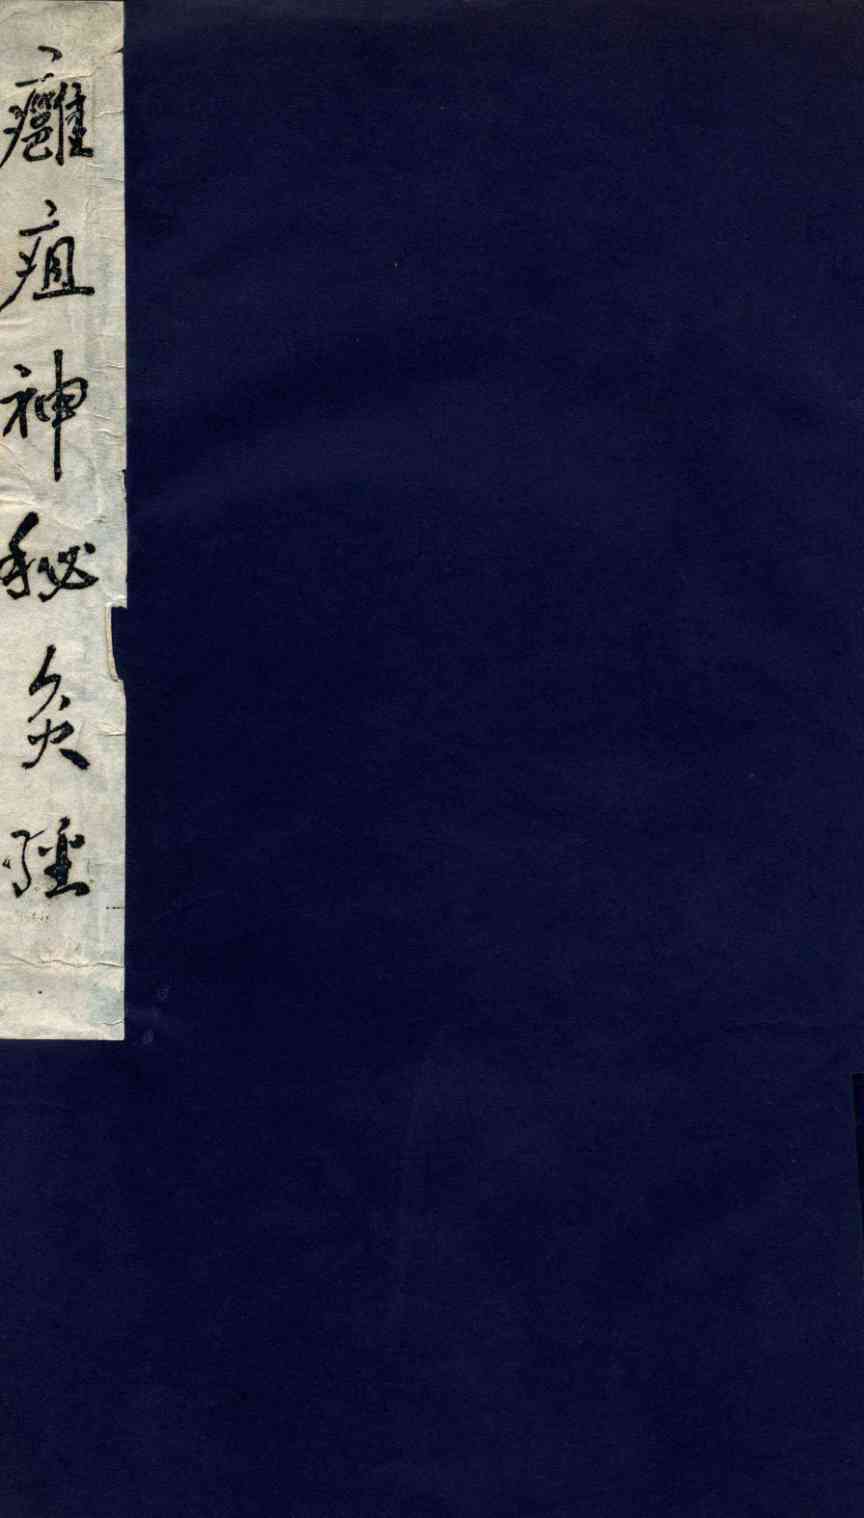 癰疽神秘灸經